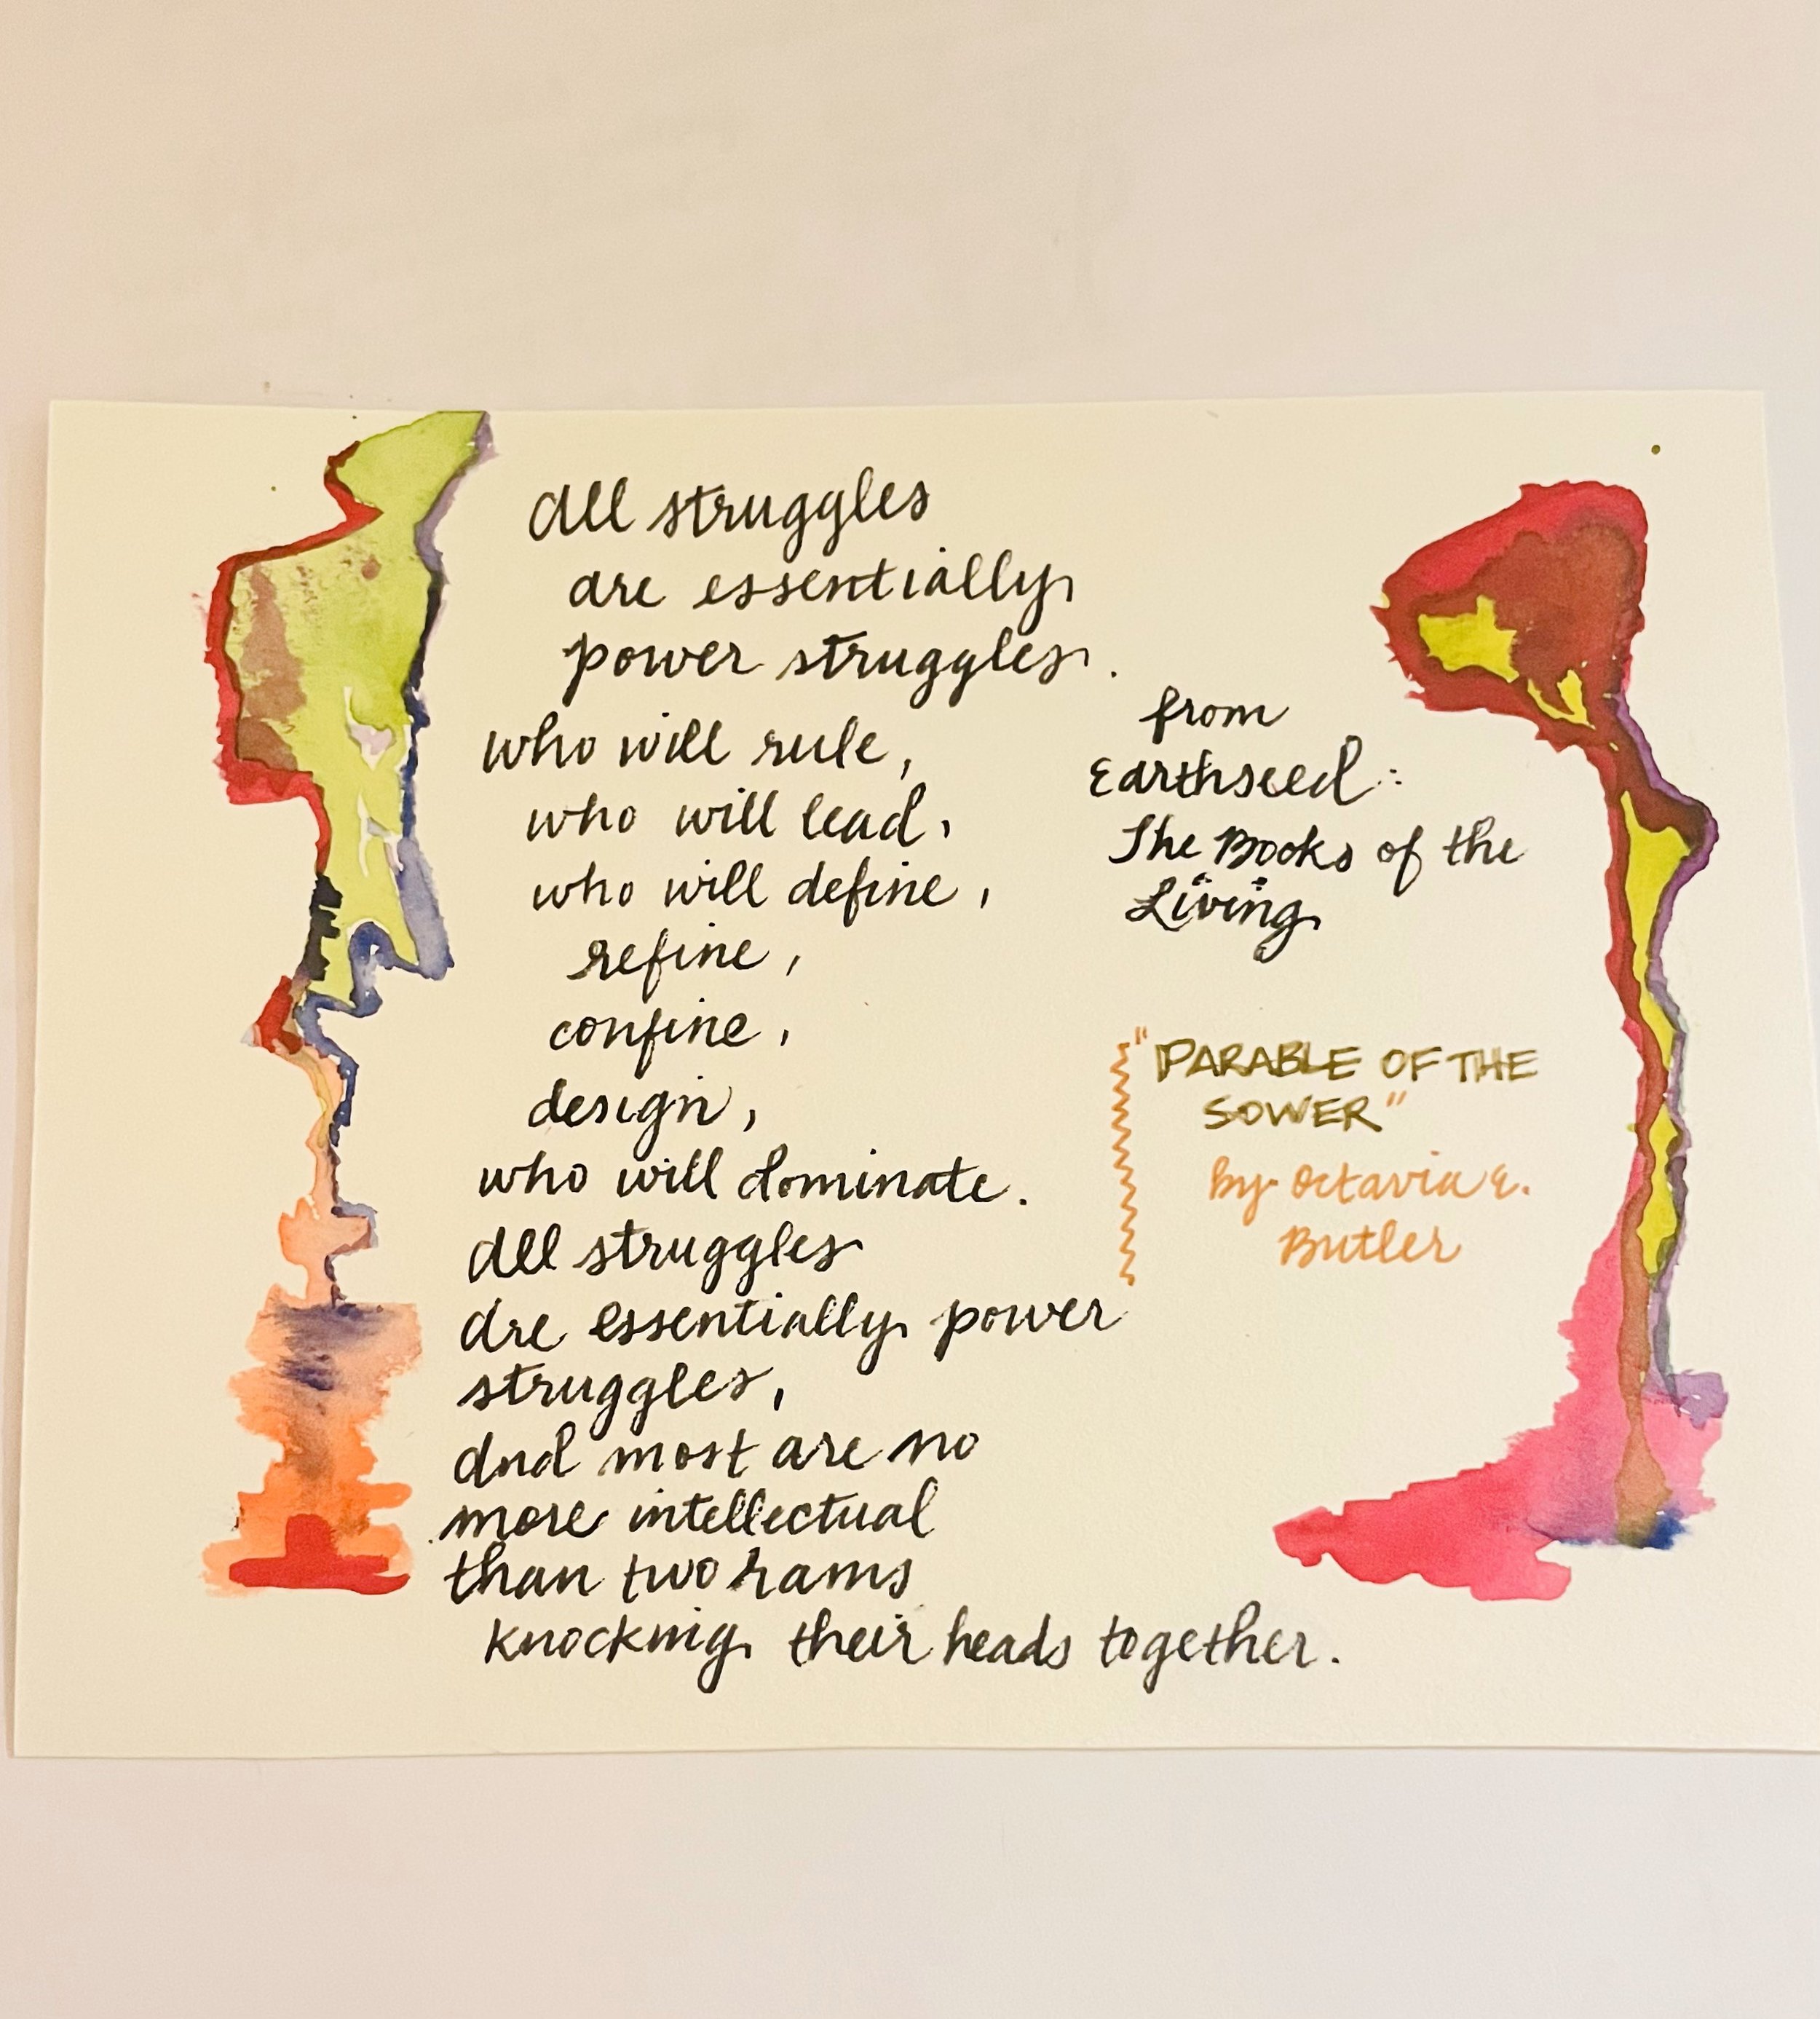 All struggles
are essentially
power struggles.
who will rule,
who will lead,
who will define,
refine,
confine,
design,
who will dominate.
All struggles
are essentially power
struggles,
and most are no
more intellectual
than two rams
knocking their heads together.
from
Earthseed:
The Books of the
Living
"PARABLE OF THE
SOWER"
by Octavia E.
Butler